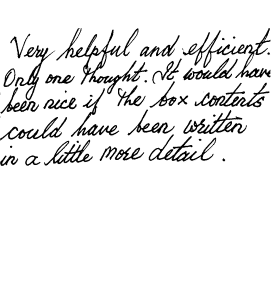 Very helpful and efficient.
Only one thought. It would have
been nice if the box contents
could have been written
in a little more detail.